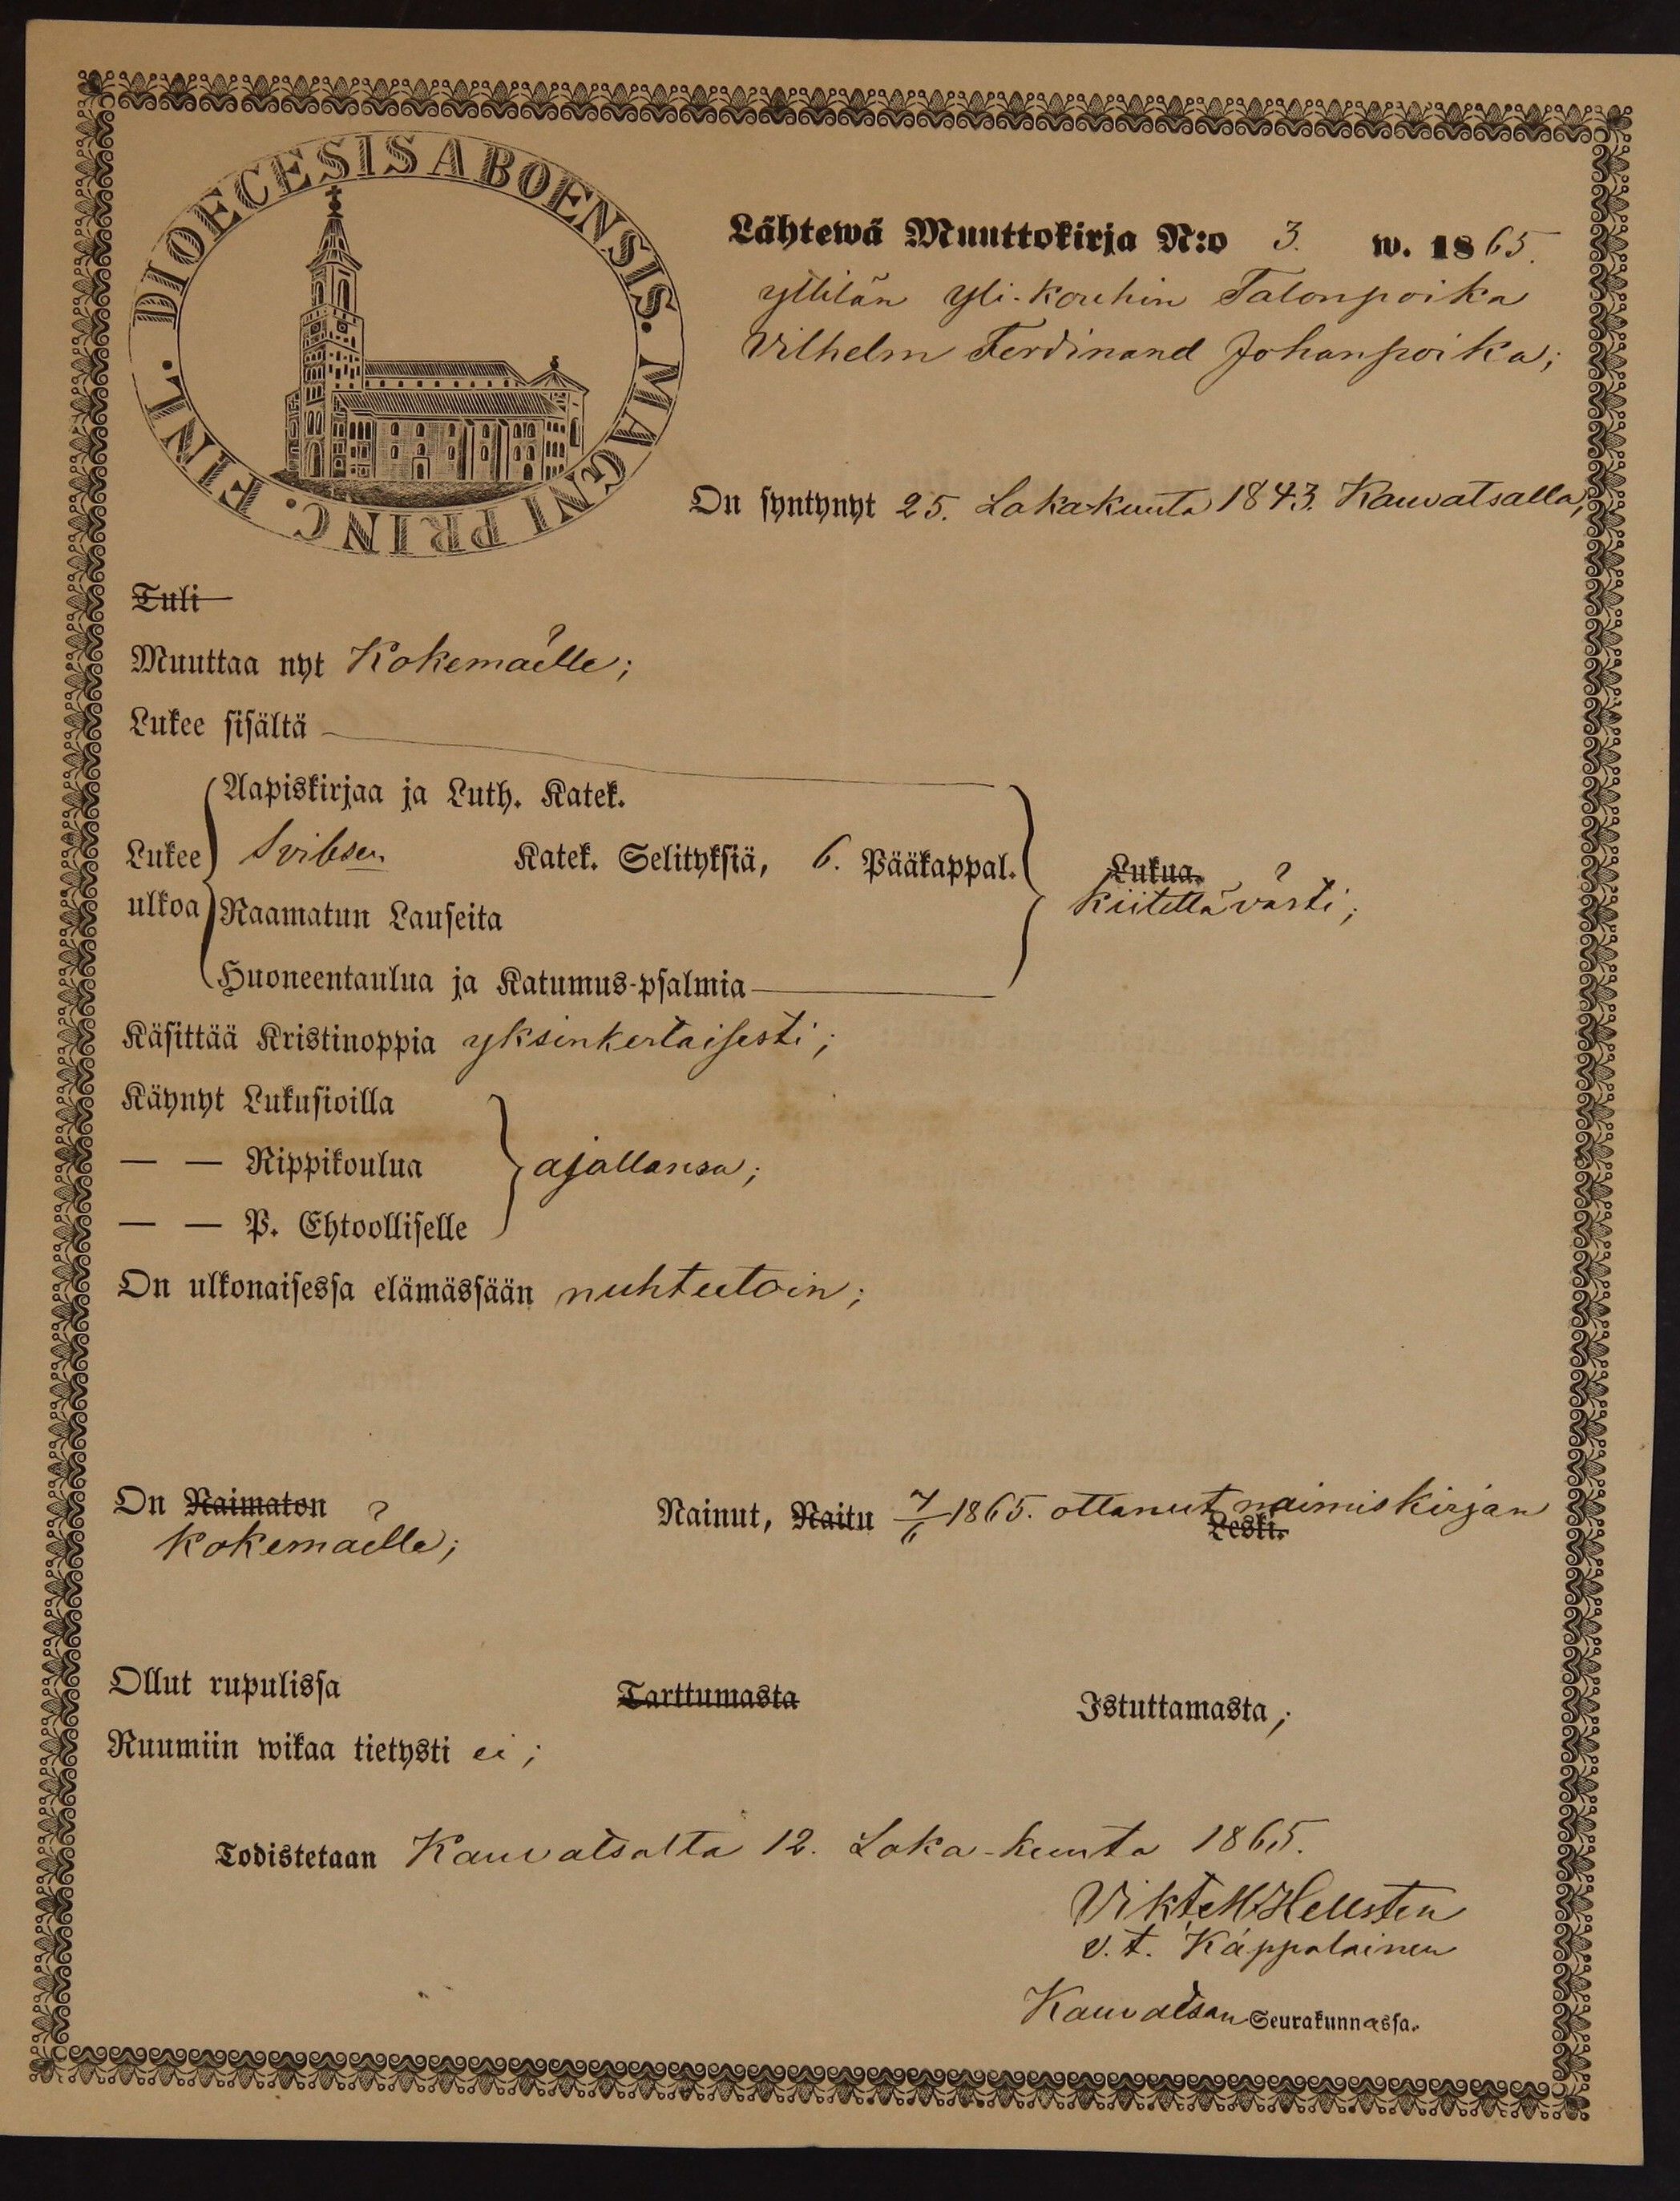 DIOECESIS ABOENSIS. MAGNI PRINC. FINL.
Lähtewä Muuttokirja N:o 3. w. 1865.
Yttilän Yli-Kouhin Talonpoika
Vilhelm Ferdinand Johanpoika;
On syntynyt 25. Lokakuuta 1843. Kauvatsalla;
Tuli
Muuttaa nyt Kokemäelle;
Lukee sisältä
Aapiskirjaa ja Luth. Katek.
Lukee Svibsen Katek. Selityksiä, 6. Pääkappal. Lukua.
ulkoa Raamatun Lauseita kiitettävästi;
Huoneentaulua ja Katumus-psalmia
Käsittää Kristinoppia yksinkertaisesti;
Käynyt Lukusioilla
— — Rippikoulua ajallansa;
— — P. Ehtoolliselle
On ulkonaisessa elämässään nuhteetoin;
On Naimaton Nainut, Naitu 7/6 1865. ottanut naimiskirjan Leski.
Kokemäelle;
Ollut rupulissa Tarttumasta Istuttamasta;
Ruumiin wikaa tietysti ei;
Todistetaan Kauvatsalta 12. Loka-kuuta 1865.
Vikt. M. Hellsten
v. t. Kappalainen
Kauvatsan Seurakunnassa.